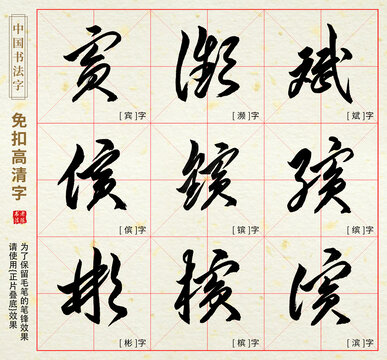 中国书法字
免扣高清字
为了保留毛笔的笔锋效果
请使用[正片叠底]效果
賓 瀕 斌
[宾]字 [濒]字 [斌]字
儐 鑌 繽
[傧]字 [镔]字 [缤]字
彬 檳 濱
[彬]字 [槟]字 [滨]字